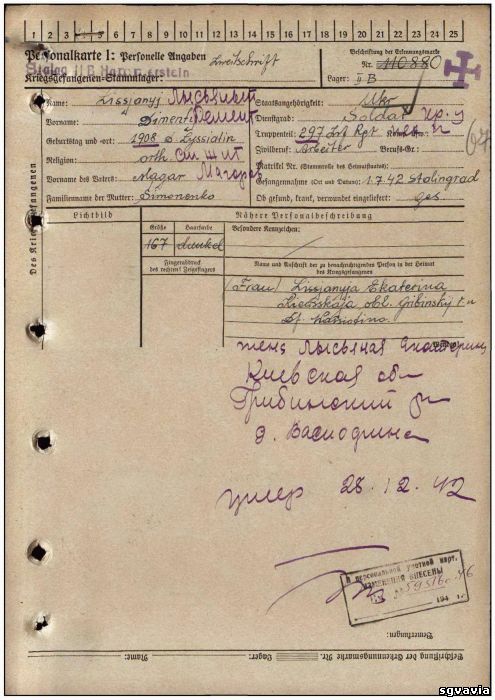 1 2 3 4 5 6 7 8 9 10 11 12 13 14 15 16 17 18 19 20 21 22 23 24 25
Personalkarte I: Personelle Angaben
Zweitschrift
Beschriftung der Erkennungsmarke
Stalag II B Hammerstein
Nr. 110880
Kriegsgefangenen-Stammlager:
Lager: II B
Des Kriegsgefangenen
Name: Lissjanyj Лысьяный
Staatsangehörigkeit: Ukr
Vorname: Dementi Демент
Dienstgrad: Soldat кр-ц
Truppenteil: 297 Inf Rgt
Geburtstag und -ort: 1908
Zivilberuf: Arbeiter Berufs-Gr.:
Religion: orth.
Matrikel Nr. (Stammrolle des Heimatstaates):
Vorname des Vaters: Magar
Gefangennahme (Ort und Datum): 1.7.42 Stalingrad
Familienname der Mutter: Simonenko
Ob gesund, krank, verwundet eingeliefert: ges.
Lichtbild
Nähere Personalbeschreibung
Größe Haarfarbe Besondere Kennzeichen:
167 dunkel
Fingerabdruck
des rechten! Zeigefingers
Name und Anschrift der zu benachrichtigenden Person in der Heimat
des Kriegsgefangenen
(Frau) Lissjanyja Ekaterina
Kiewskaja obl. Gribinskij r.n
жена Лысьяная Екатерина
Киевская об-
Грибинский р-
д. Васиодина
умер 28.12.42
В персональной учетной карт.
ИЗМЕНЕНИЯ ВНЕСЕНЫ
194 г.
Bemerkungen:
Beschriftung der Erkennungsmarke Nr. Lager: Name:
sgvavia